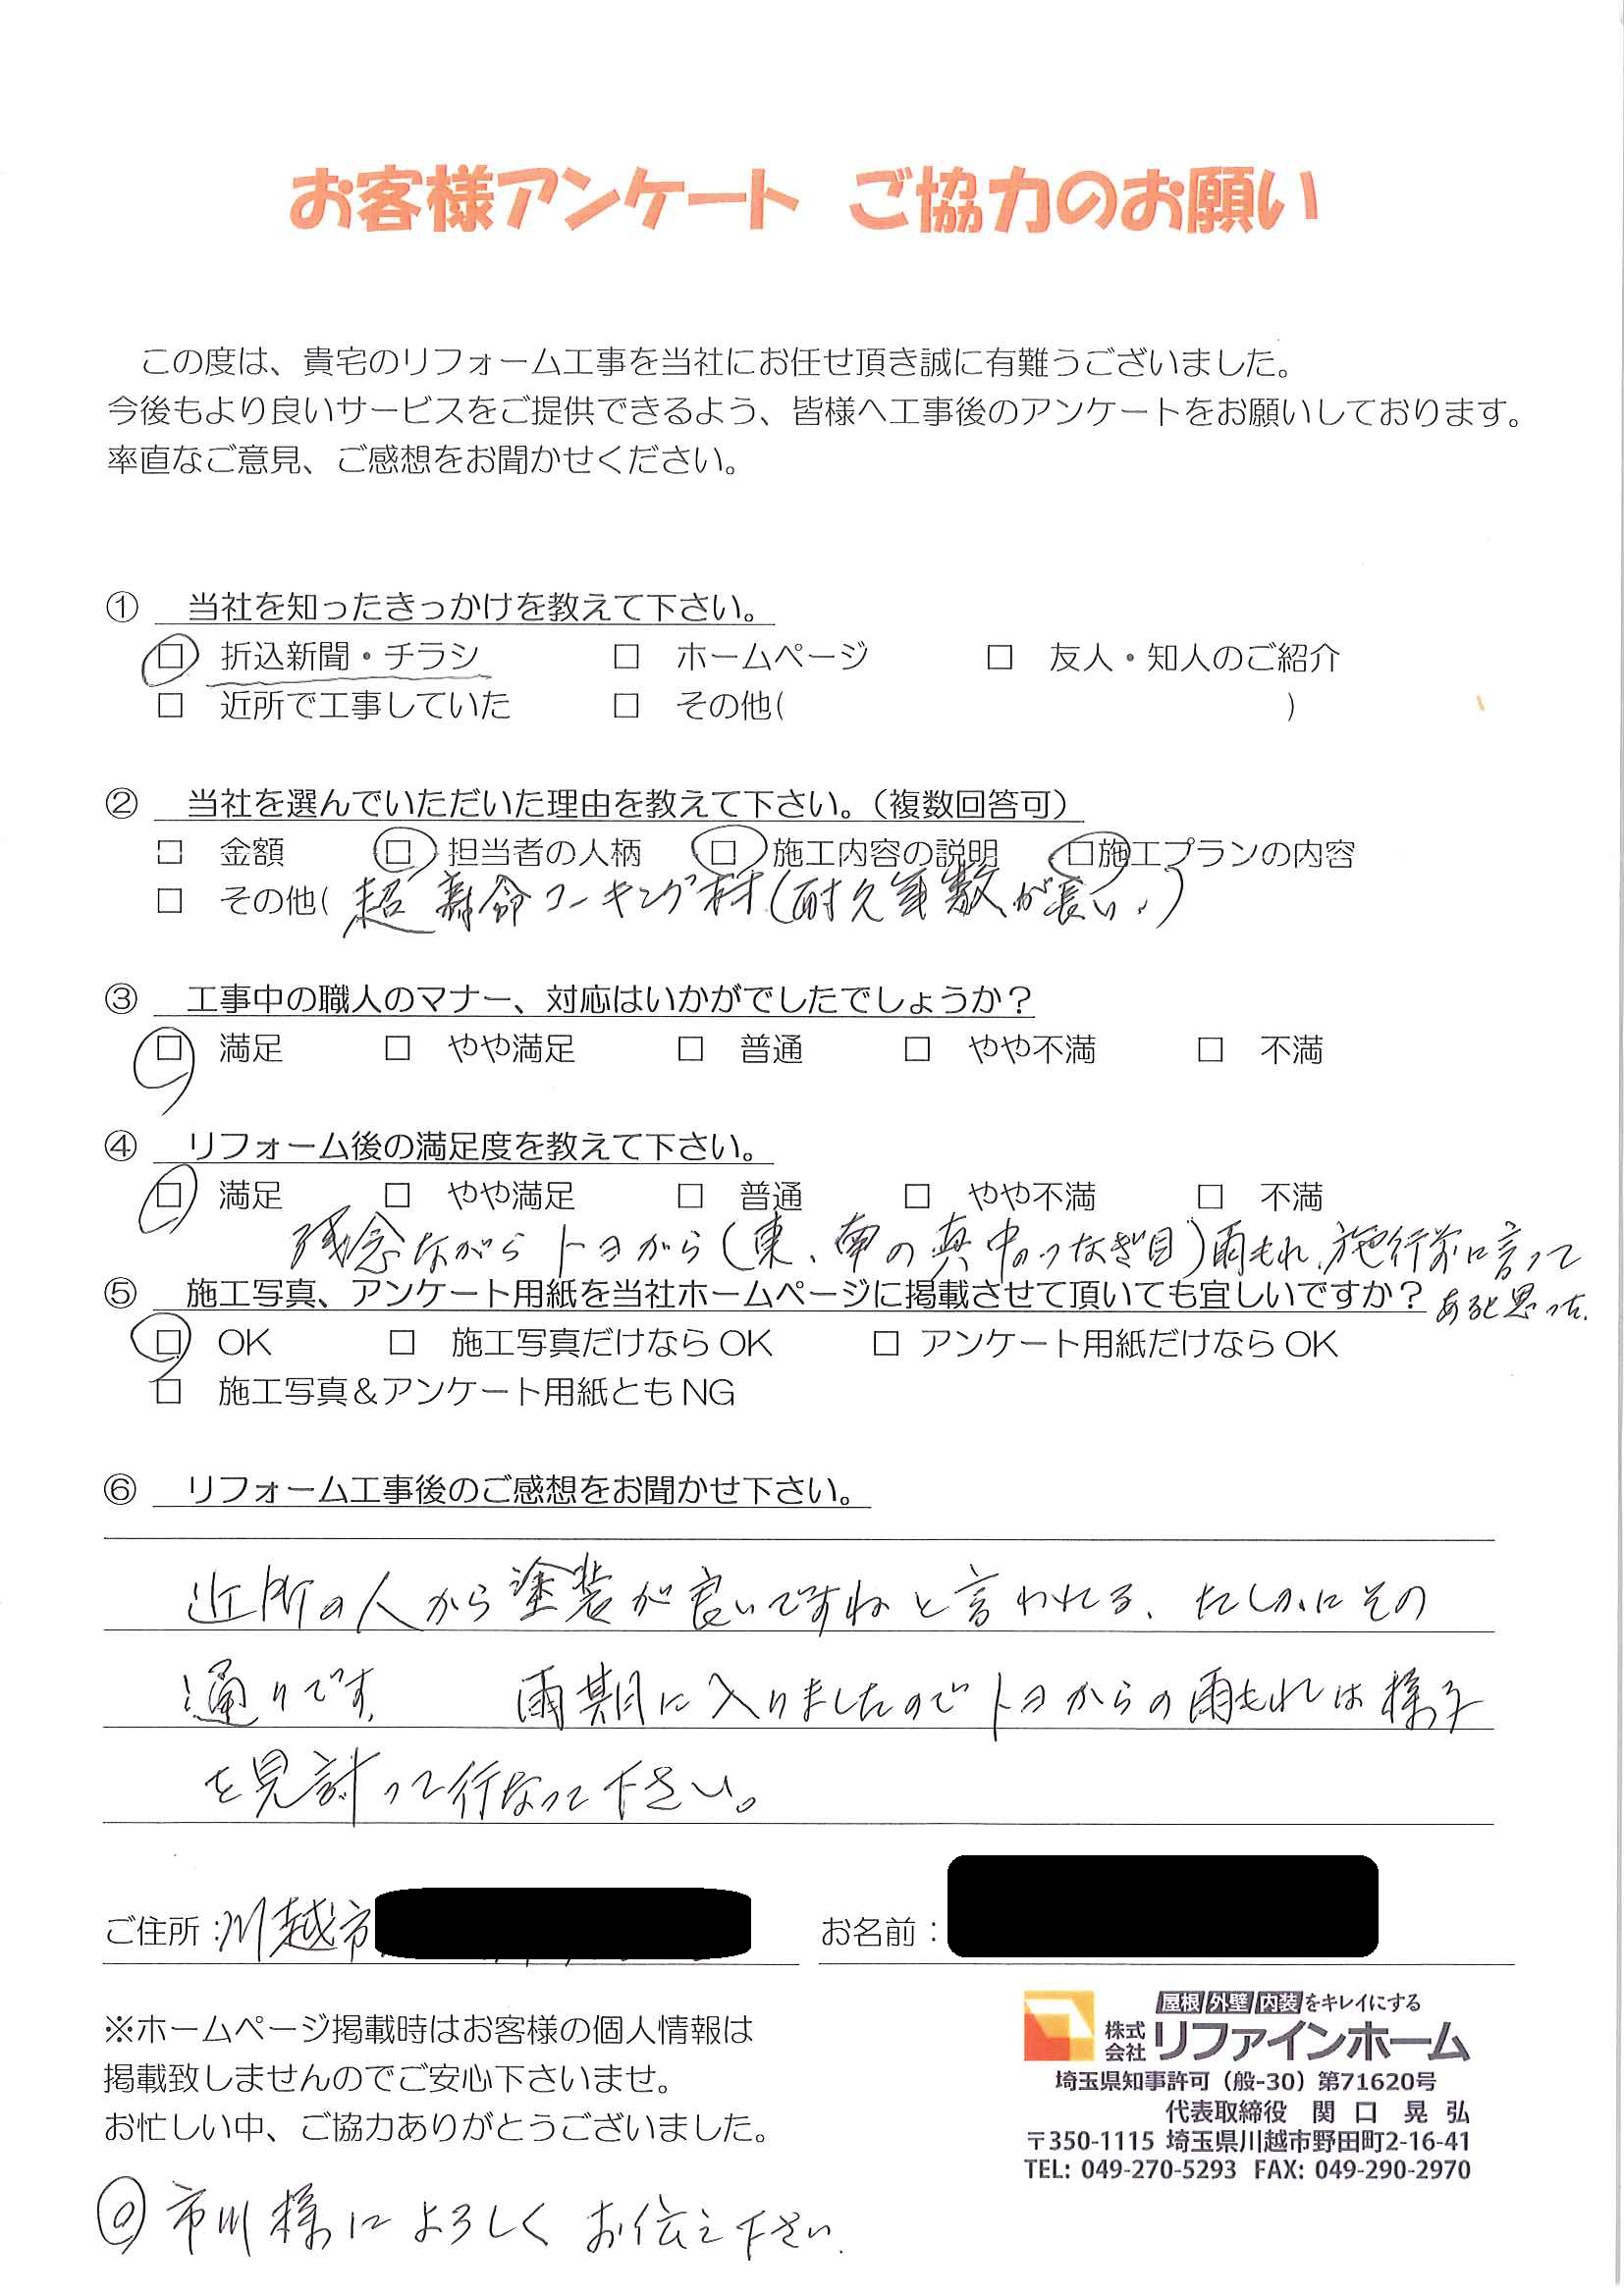 お客様アンケート ご協力のお願い
この度は、貴宅のリフォーム工事を当社にお任せ頂き誠に有難うございました。
今後もより良いサービスをご提供できるよう、皆様へ工事後のアンケートをお願いしております。
率直なご意見、ご感想をお聞かせください。
① 当社を知ったきっかけを教えて下さい。
□ 折込新聞・チラシ □ ホームページ □ 友人・知人のご紹介
□ 近所で工事していた □ その他( )
② 当社を選んでいただいた理由を教えて下さい。（複数回答可）
□ 金額 □ 担当者の人柄 □ 施工内容の説明 □施工プランの内容
□ その他( 超寿命コーキング材(耐久年数が長い。)
③ 工事中の職人のマナー、対応はいかがでしたでしょうか？
□ 満足 □ やや満足 □ 普通 □ やや不満 □ 不満
④ リフォーム後の満足度を教えて下さい。
□ 満足 □ やや満足 □ 普通 □ やや不満 □ 不満
残念ながらトヨから(東、南の真中のつなぎ目)雨もれ、施行前に言って
あると思った。
⑤ 施工写真、アンケート用紙を当社ホームページに掲載させて頂いても宜しいですか？
□ OK □ 施工写真だけなら OK □ アンケート用紙だけなら OK
□ 施工写真＆アンケート用紙とも NG
⑥ リフォーム工事後のご感想をお聞かせ下さい。
近所の人から塗装が良いですねと言われる、たしかにその
通りです。 雨期に入りましたのでトヨからの雨もれは様子
を見計って行なって下さい。
ご住所：川越市 お名前：
※ホームページ掲載時はお客様の個人情報は
掲載致しませんのでご安心下さいませ。
お忙しい中、ご協力ありがとうございました。
屋根 外壁 内装 をキレイにする
株式会社 リファインホーム
埼玉県知事許可（般-30）第71620号
代表取締役 関口 晃弘
〒350-1115 埼玉県川越市野田町2-16-41
TEL: 049-270-5293 FAX: 049-290-2970
市川様によろしくお伝え下さい。